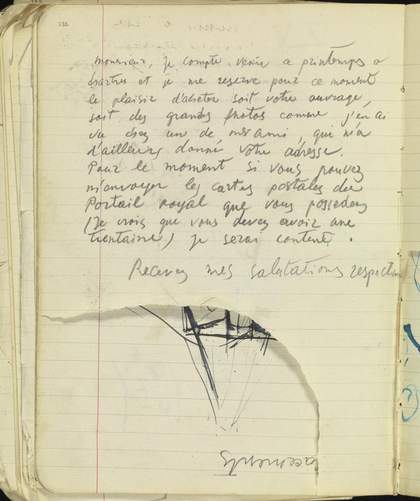 monsieur, je compte venir a printemps a
chartres et je me reserve pour ce moment
le plaisir d'acheter soit votre ouvrage,
soit des grandes photos comme j'en ai
vu chez un de mes amis, qui m'a
d'ailleurs donné votre adresse.
Pour le moment si vous pouvez
m'envoyer les cartes postales du
Portail royal que vous possedez
(Je crois que vous devez avoir une
trentaine) je serai content.
Recevez mes salutations respect